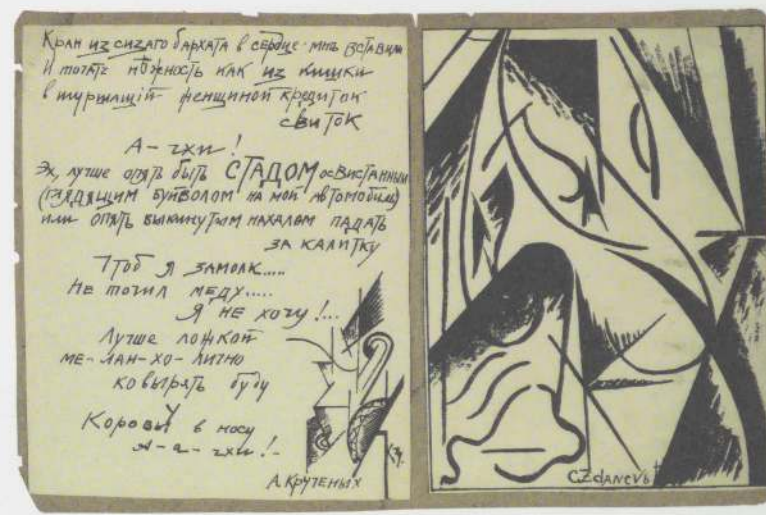 Кран из сизаго бархата в сердце мнѣ вставим
и точать нѣжность как из кишки
в шуршащій женщиной кредиток
свиток
А-чхи!
Эх, лучше опять быть СТАДОМ освистанным
(глядящим буйволом на мой автомобиль)
или опять выкинутым нахалом падать
за калитку
Чтоб я замолк.....
Не точил меду.....
Я не хочу!...
Лучше ложкой
ме-лан-хо-лично
ковырять буду
Коровы в носу
А-а-чхи!-
А. Крученых
C. ZdANEVb